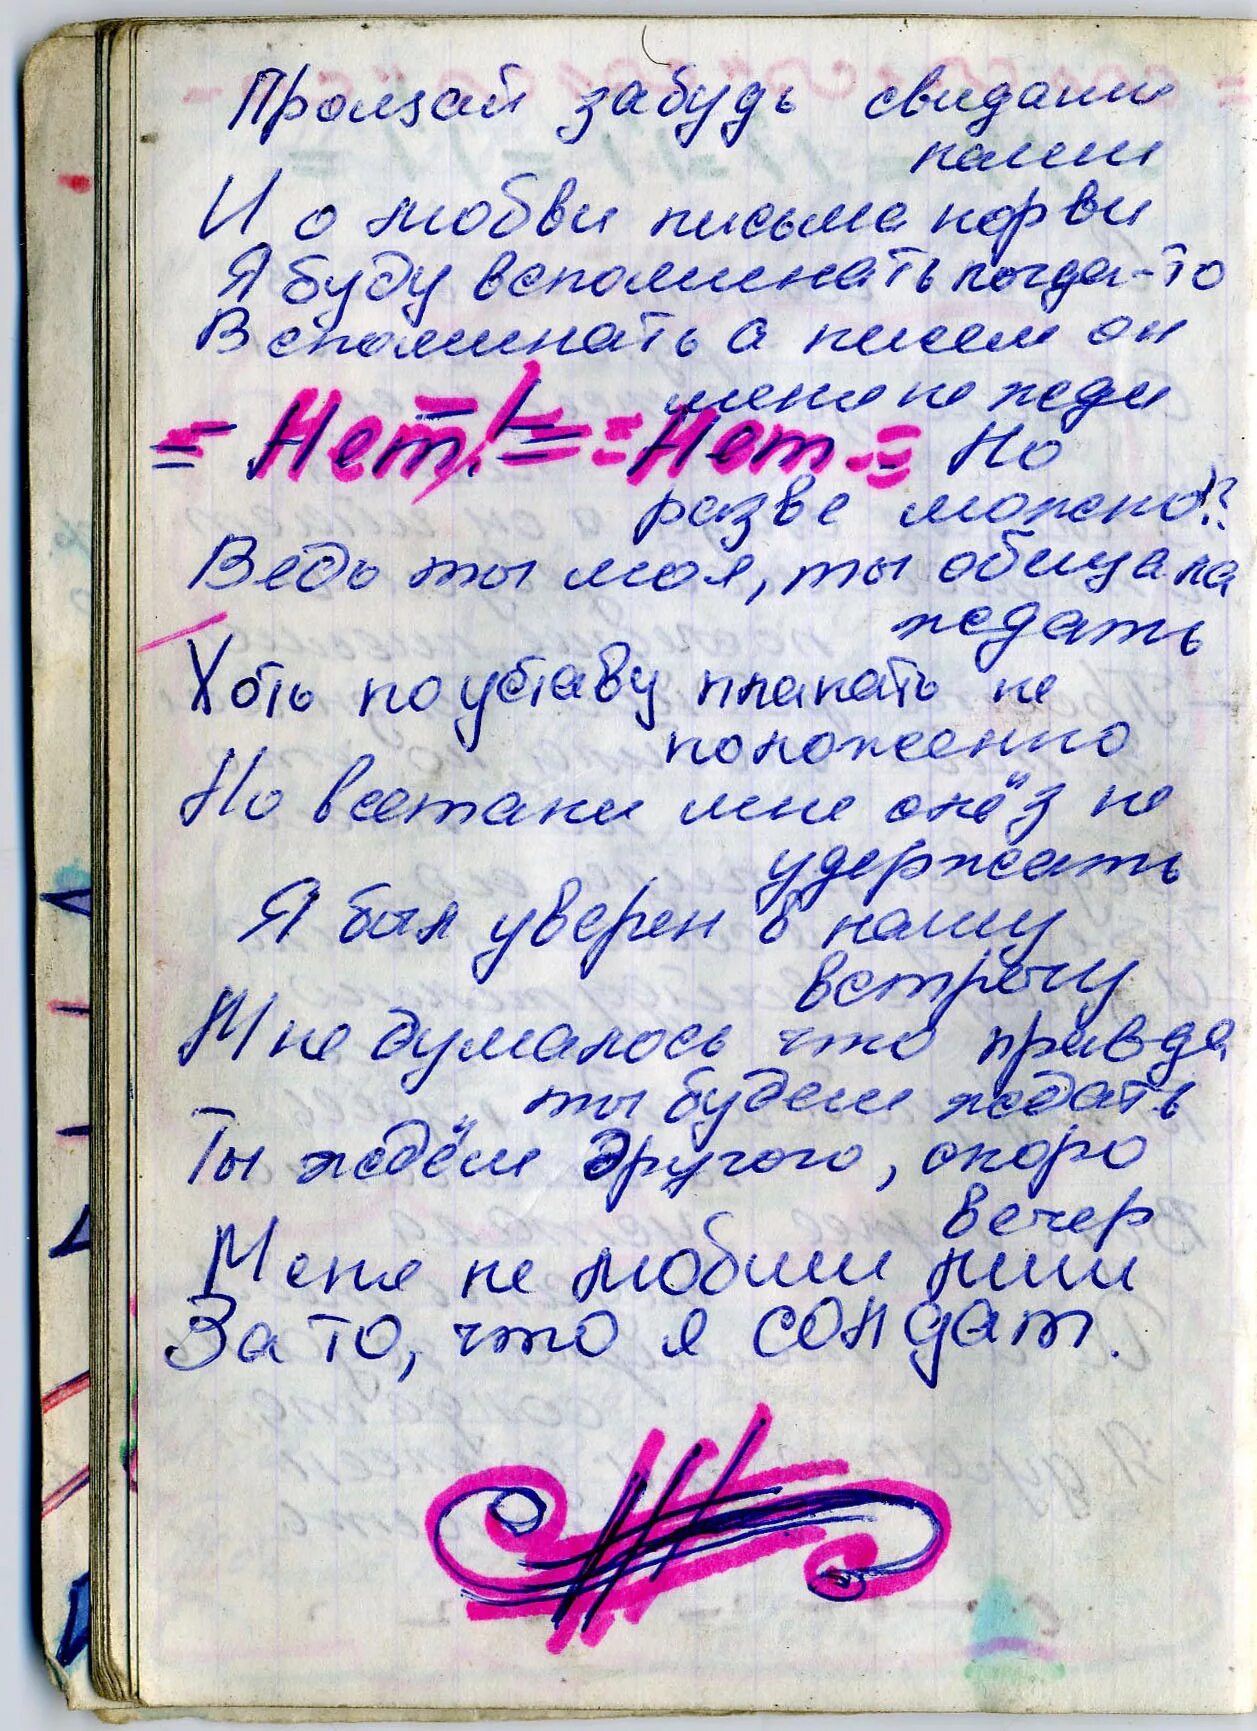 Прощай забудь свидания
наши
И о любви письма порви
Я буду вспоминать когда-то
Вспоминать а писем он
меня не жди
= Нет! = = Нет = Но
разве можно!?
Ведь ты моя, ты обищала
ждать
Хоть по уставу плакать не
положенно
Но всетаки мне слёз не
удержать
Я был уверен в нашу
встречу
Мне думалось что правда
ты будеш ждать
Ты ждёш другого, скоро
вечер
Меня не любиш лиш
За то, что я солдат.